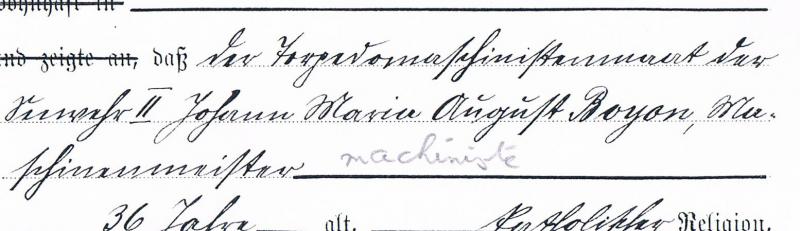 wohnhaft in
und zeigte an, daß der Torpedomaschinistenmaat der
Seewehr II Johann Maria August Boyon, Ma-
schinenmeister machiniste
36 Jahre alt, katholischer Religion,